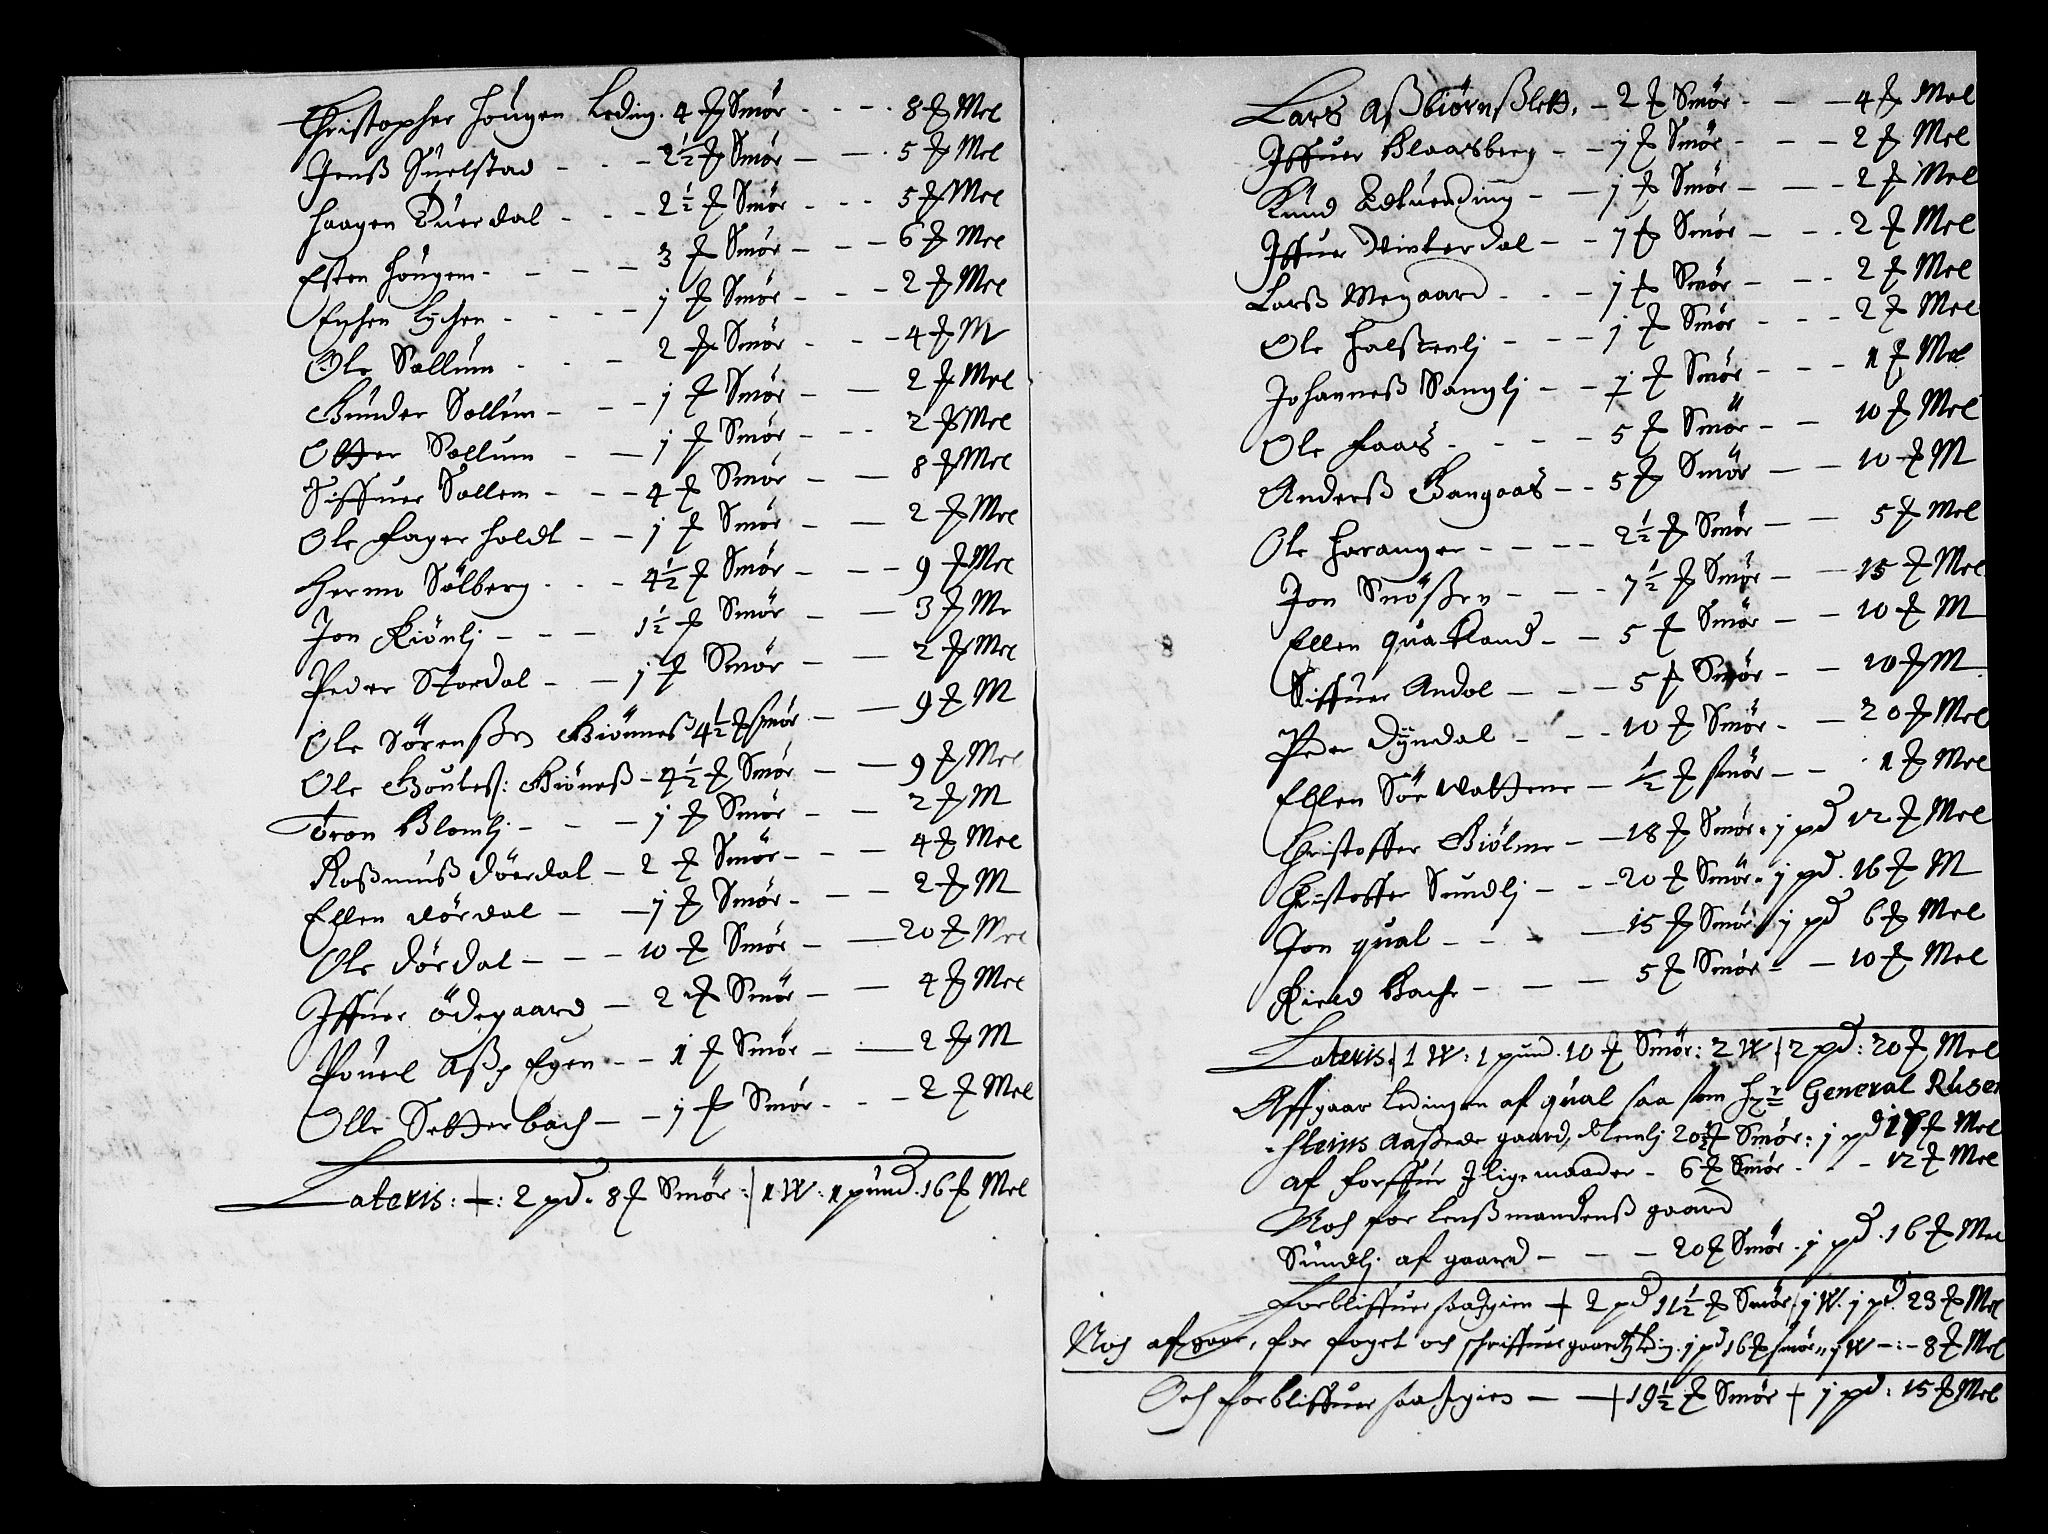 Christopher Hougen Leding. 4 ℔ Smör - - - 8 ℔ Mel
Jenß Suelstad - - - 2½ ℔ Smör - - 5 ℔ Mel
Haagen Duerdal - - - 2½ ℔ Smör - - - 5 ℔ Mel
Esten Hougem - - - - 3 ℔ Smör - - - 6 ℔ Mel
Lychen - - - - j ℔ Smör - - - 2 ℔ Mel
Ole Sollum - - - 2 ℔ Smör - - - 4 ℔ M
Gunder Sollum - - - j ℔ Smör - - 2 ℔ Mel
Otter Sollum - - j ℔ Smör - - - 2 ℔ Mel
Siffuer Sollem - - - 4 ℔ Smör - - 8 ℔ Mel
Ole Fagerholdt - - j ℔ Smör - - 2 ℔ Mel
Hermo Solberg - - - 4½ ℔ Smör - - - 9 ℔ Mel
Jon Kiönlj - - - 1½ ℔ Smör - - 3 ℔ Me
Peder Stordal - - j ℔ Smör - - 2 ℔ Mel
Ole Sörenßen Giönneß 4½ ℔ smör - - 9 ℔ M
Ole Gouteß: Giöneß - 4½ ℔ Smör - - 9 ℔ Mel
Tron Blomlj - - - j ℔ Smör - - 2 ℔ M
Roßmuß Döerdal - 2 ℔ Smör - - - 4 ℔ Mel
Ellen Dördal - - j ℔ Smör - - 2 ℔ M
Ole Dördal - - - 10 ℔ Smör - - 20 ℔ Mel
Iffuer Ödegaard - 2 ℔ Smör - - 4 ℔ Mel
Pouel Aßp Egen - - 1 ℔ Smör - - 2 ℔ M
Olle Setterbach - - j ℔ Smör - - - 2 ℔ Mel
Lateris: - : 2 pd. 8 ℔ Smör: | 1 W: 1 pund. 16 ℔ Mel
Lars Aßbiörnßlett. - 2 ℔ Smör - - - 4 ℔ Mel
Iffuer Blaasberg - - j ℔ Smör - - - 2 ℔ Mel
Knud - - j ℔ Smör - - - 2 ℔ Mel
Iffuer Vinterdal - - j ℔ Smör - - - 2 ℔ Mel
Larß Megaard - - - j ℔ Smör - - - 2 ℔ Mel
Ole Halstenlj - - - j ℔ Smör - - - 2 ℔ Mel
Johanneß Vanglj - - ½ ℔ Smör - - - 1 ℔ Mel
Ole Faaes - - - - 5 ℔ Smör - - 10 ℔ Mel
Anderß Gangaas - - 5 ℔ Smör - - 10 ℔ M
Ole Haranger - - - - 2½ ℔ Smör - - 5 ℔ Mel
Jon Snößen - - - 7½ ℔ Smör - - 15 ℔ Mel
Ellen Quakland - - 5 ℔ Smör - - 10 ℔ M
Siffuer Andol - - - 5 ℔ Smör - - 10 ℔ M
Peder Dyndal - - - 10 ℔ Smör - - 20 ℔ Mel
Ellen Sör Wattene - ½ ℔ smör - - 1 ℔ Mel
Christoffer Giölme - - 18 ℔ Smör. j pd 12 ℔ Mel
Christoffer Sundlj - - - 20 ℔ Smör. j pd. 16 ℔ M
Jon Qual - - - - 15 ℔ Smör. j pd 6 ℔ Mel
Kield Bache - - - - 5 ℔ Smör - - 10 ℔ Mel
Lateris: | 1 W: 1 pund. 10 ℔ Smör: 2 W | 2 pd: 20 ℔ Mel
Affgaar Ledingen af Qual saa som Her General Rusen
-steins Aaßede gaard, Nemlj 20½ ℔ Smör: j pd 17 ℔ Mel
af Forffur Iligemaader - 6 ℔ Smör - - - 12 ℔ Mel
Noch for Lenßmandenß gaard
Sundlj af gaard - - - 20 ℔ Smör. j pd. 16 ℔ Mel
Forbliffuer saa - 2 pd 11½ ℔ Smör | j W. j pd. 23 ℔ Mel
Noch afgaar, for foget och schriffuer gaards Leding. j pd 16 ℔ smör. j W - : - 8 ℔ Mel
Och forbliffuer saa - - 19½ ℔ Smör + j pd: 15 ℔ Mel